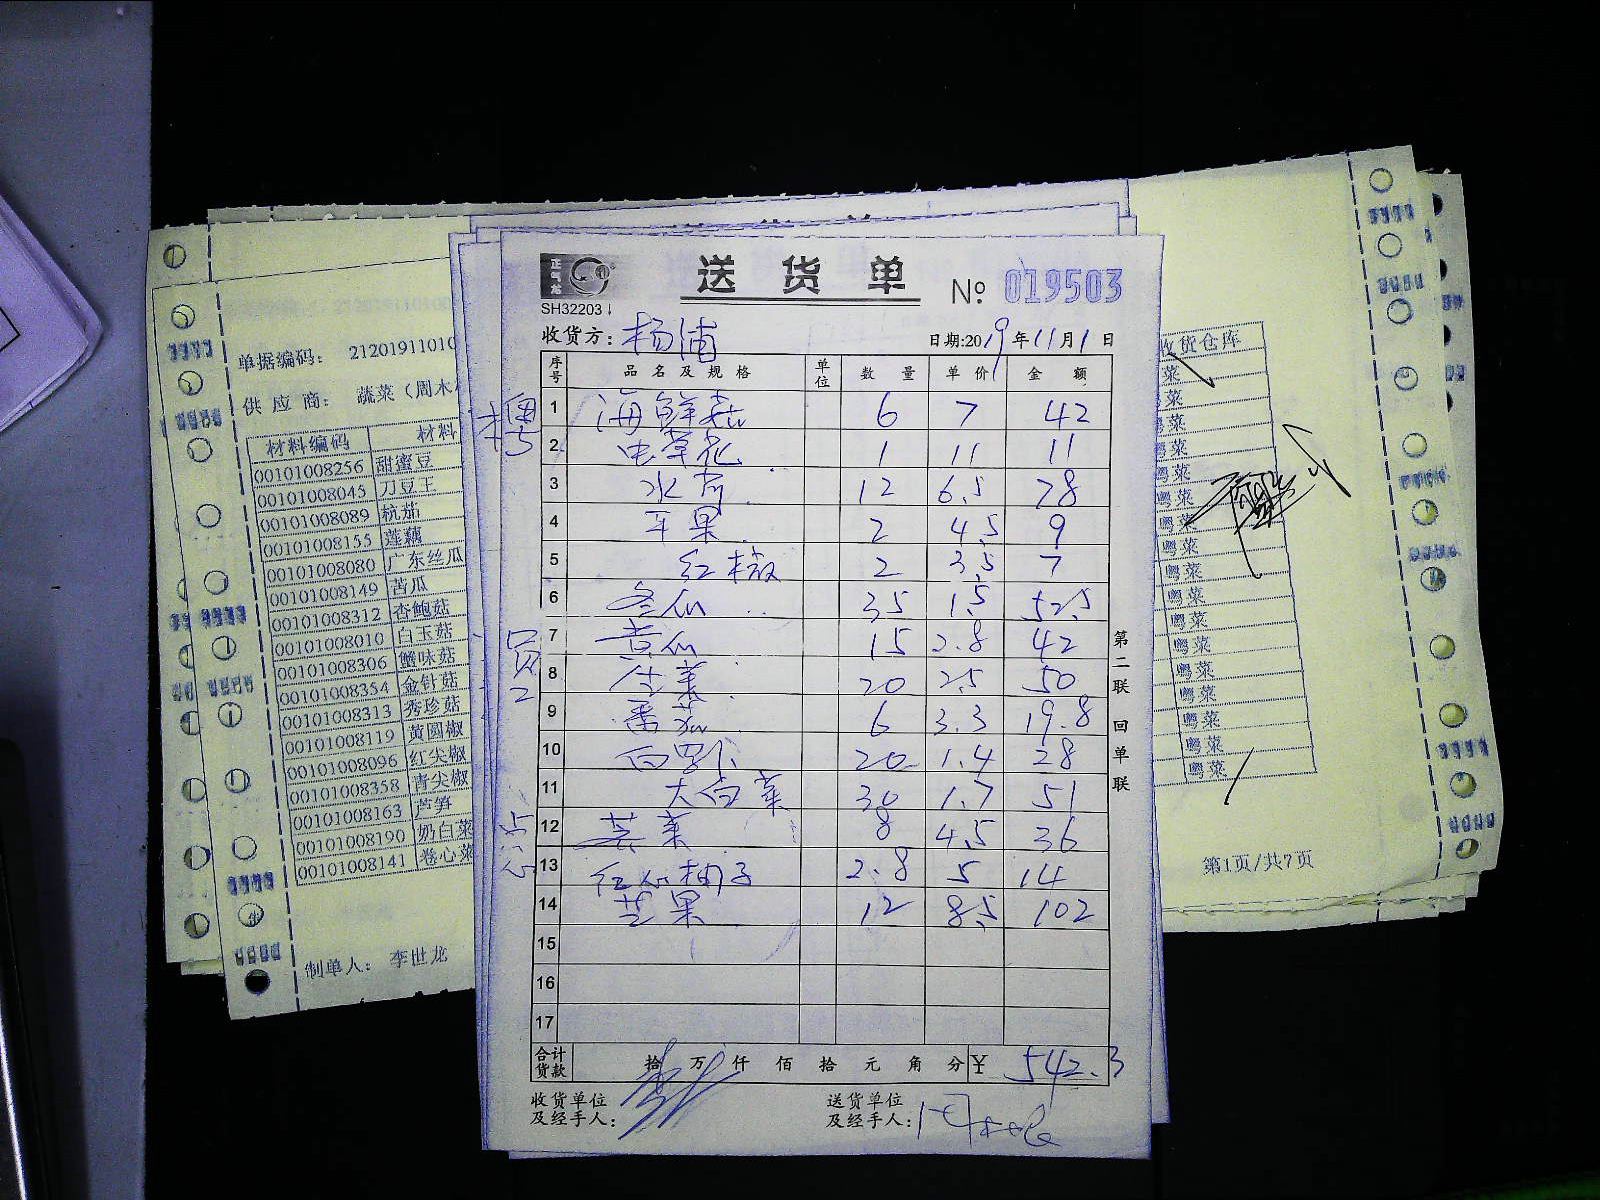 正气龙
送货单
№ 019503
SH32203
收货方：杨浦
日期:2019年11月1日
序号 品名及规格 单位 数量 单价 金额
1 海鲜菇 6 7 42
2 虫草花 1 11 11
3 水芹 12 6.5 78
4 苹果 2 4.5 9
5 红椒 2 3.5 7
6 冬瓜 35 1.5 52.5
7 黄瓜 15 2.8 42
8 生菜 20 2.5 50
9 番茄 6 3.3 19.8
10 白萝卜 20 1.4 28
11 大白菜 30 1.7 51
12 芹菜 8 4.5 36
13 红心柚子 2.8 5 14
14 苹果 12 8.5 102
15
16
17
合计货款 拾万仟佰拾元角分 ¥ 542.3
收货单位及经手人：
送货单位及经手人：
第二联 回单联
点心
单据编码： 21201911010
供应商： 蔬菜（周木
材料编码 材料
00101008256 甜蜜豆
00101008045 刀豆王
00101008089 杭茄
00101008155 莲藕
00101008080 广东丝瓜
00101008149 苦瓜
00101008312 杏鲍菇
00101008010 白玉菇
00101008306 蟹味菇
00101008354 金针菇
00101008313 秀珍菇
00101008119 黄圆椒
00101008096 红尖椒
00101008358 青尖椒
00101008163 芦笋
00101008190 奶白菜
00101008141 卷心菜
制单人： 李世龙
收货仓库
菜
菜
菜
菜
菜
粤菜
粤菜
粤菜
粤菜
粤菜
粤菜
粤菜
粤菜
粤菜
粤菜
粤菜
粤菜
第1页/共7页